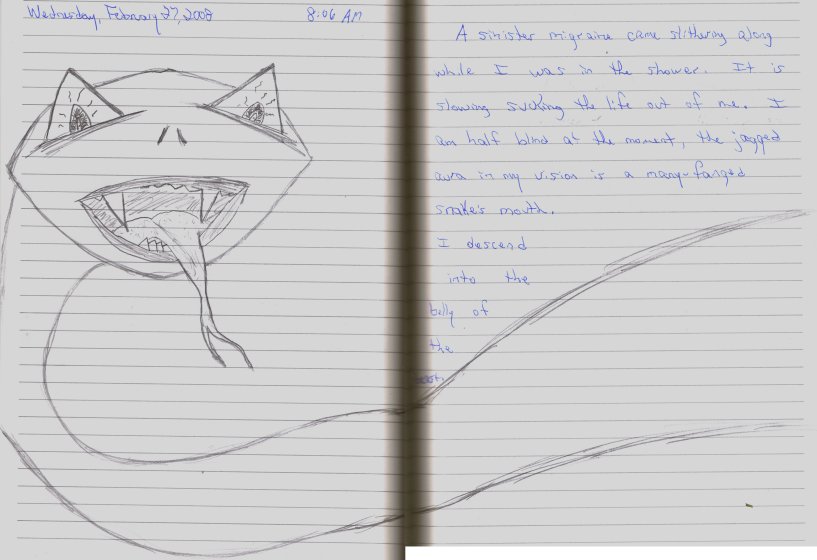 Wednesday, February 27, 2008 8:06 AM
A sinister migraine came slithering along
while I was in the shower. It is
slowing sucking the life out of me. I
am half blind at the moment, the jagged
aura in my vision is a many-fanged
snake's mouth.
I descend
into the
belly of
the